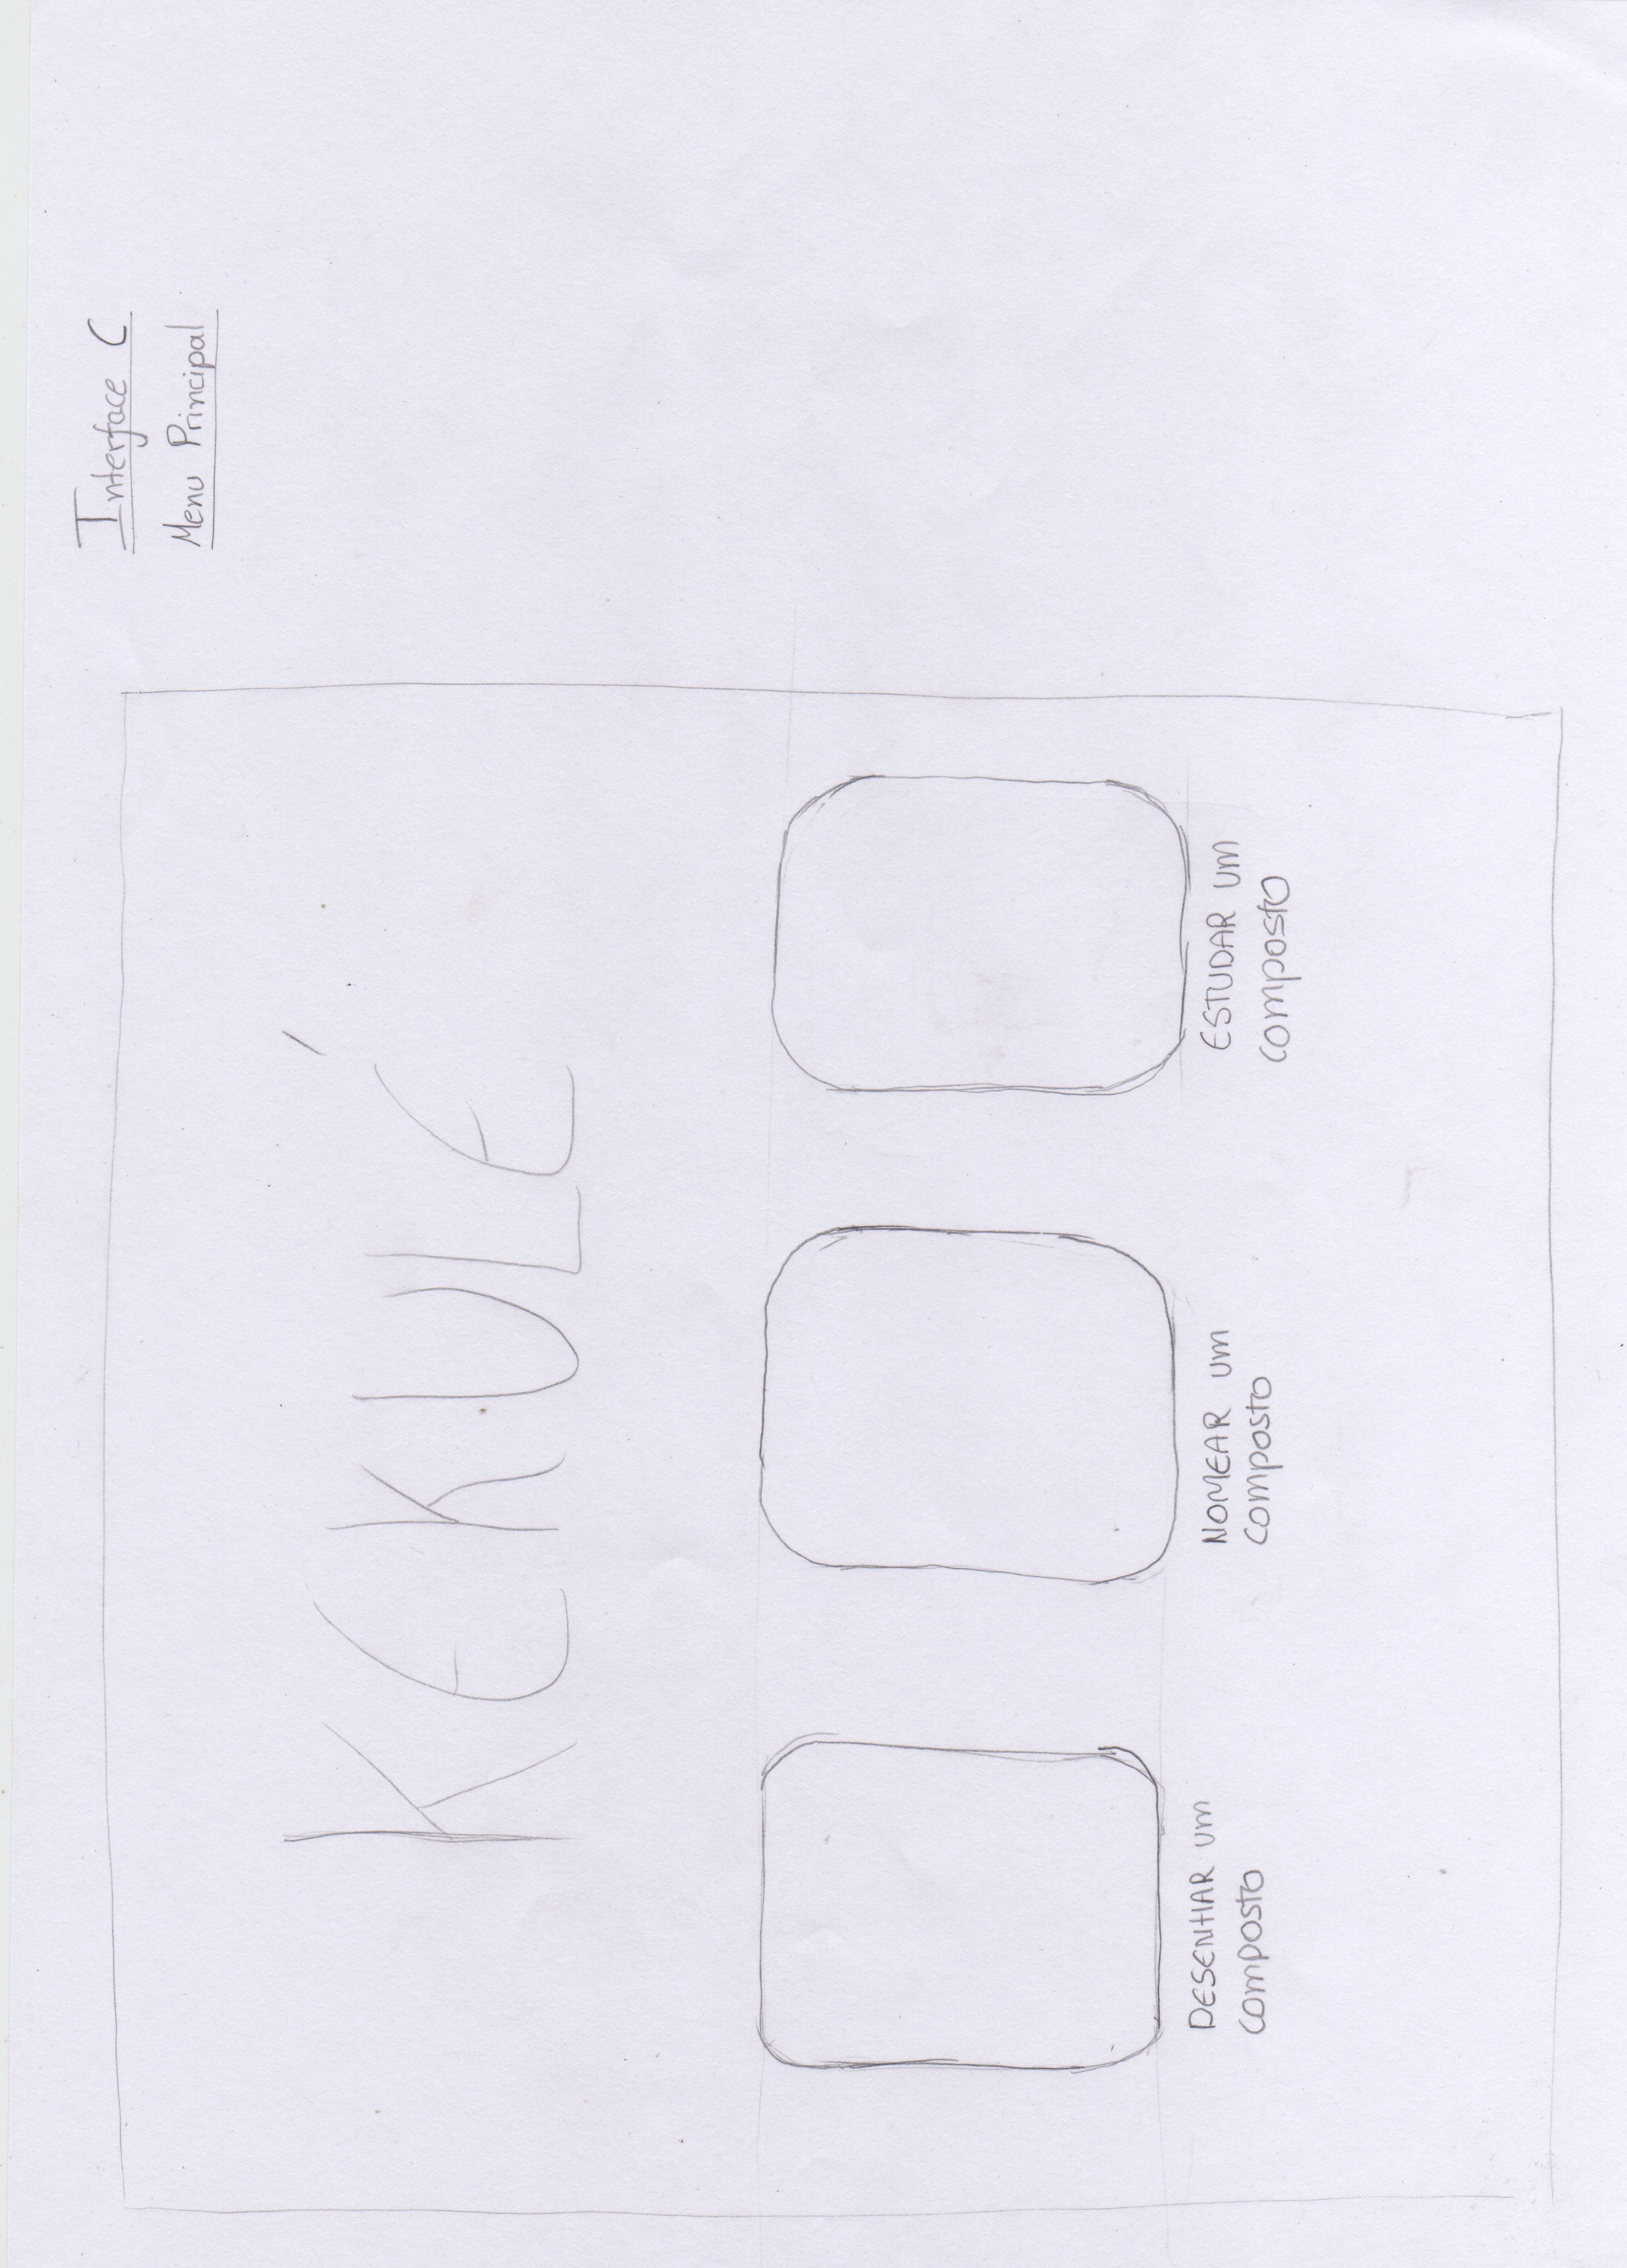 Interface C
Menu Principal
KEKULÉ
DESENHAR um
composto
NOMEAR um
composto
ESTUDAR um
composto